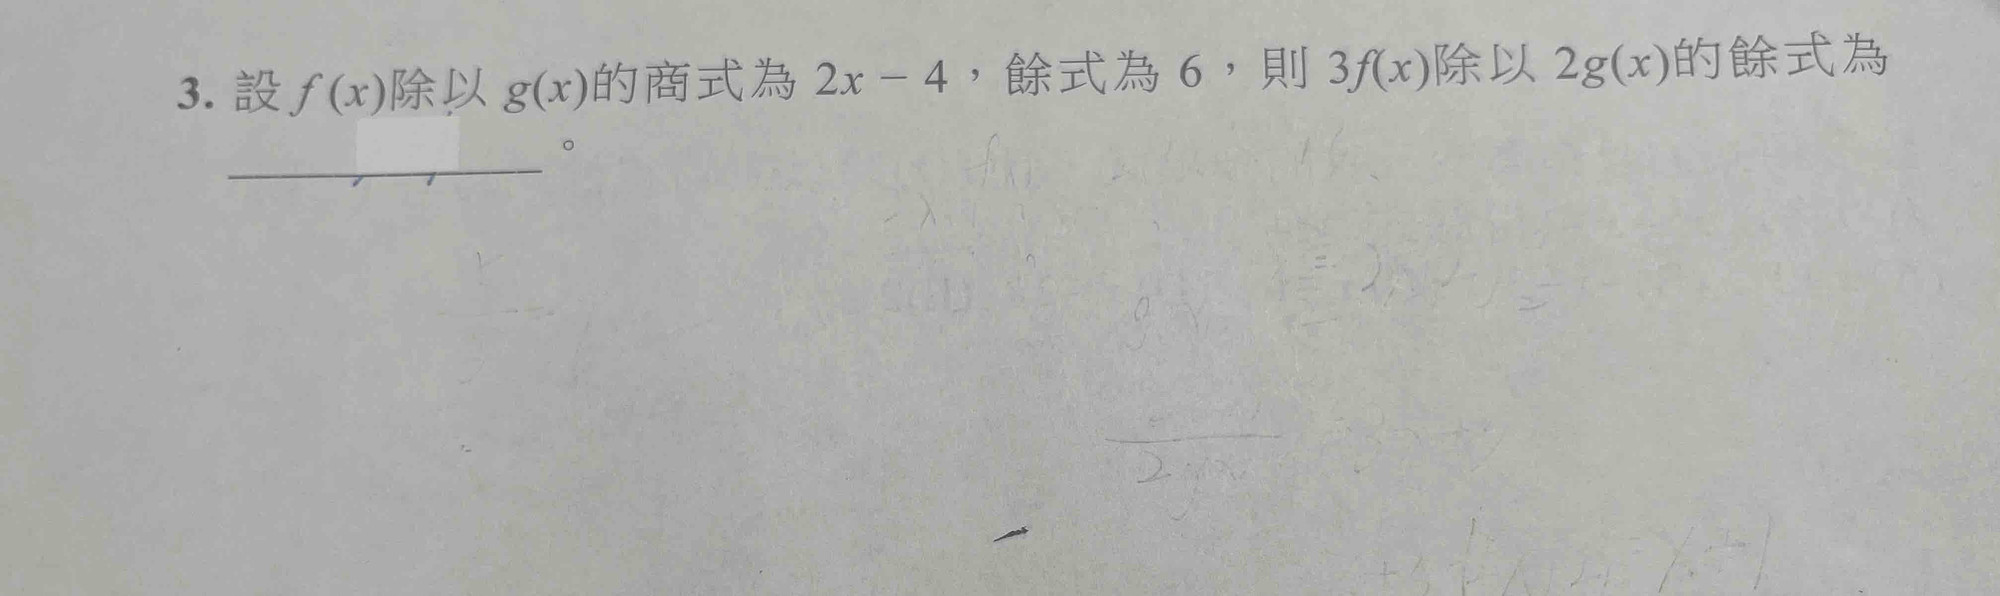 3. 設 f(x)除以 g(x)的商式為 2x − 4，餘式為 6，則 3f(x)除以 2g(x)的餘式為
。